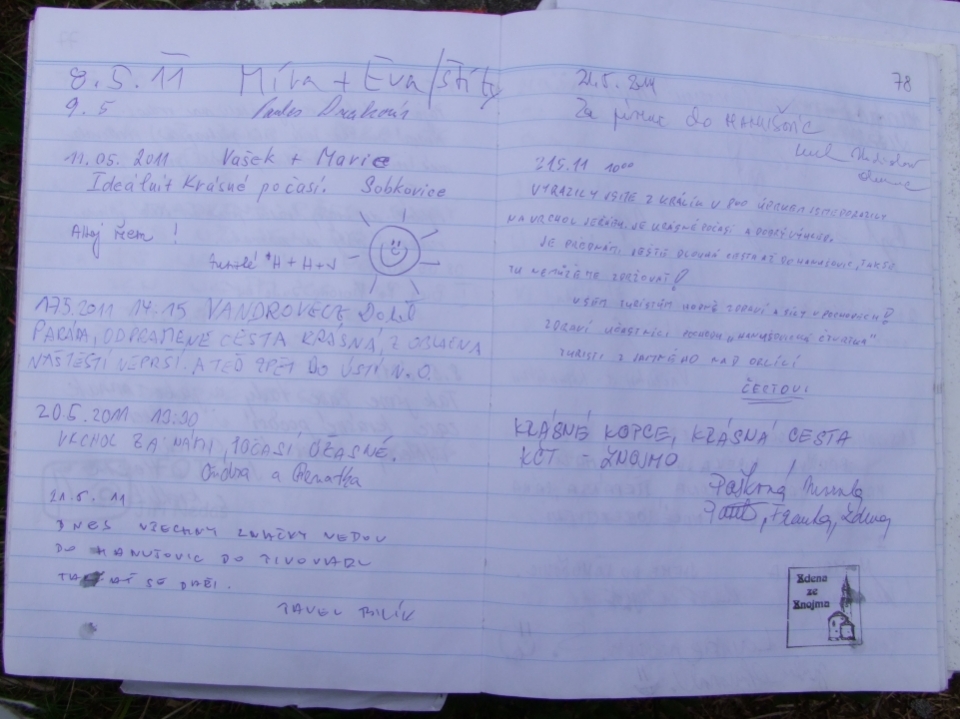 8.5.11 Míra + Eva / Štíty
9.5
11.05.2011 Vašek + Marie
Ideálnit Krásné počasí. Sobkovice
Ahoj všem !
H + H + J
17.5.2011 14.15 VANDROVECZ
PARÁDA, ODPRAMENE CESTA KRÁSNÁ, Z OBLAČNA
NAŠTĚSTÍ NEPRSÍ. A TEĎ ZPĚT DO ÚSTÍ N. O.
20.5.2011 19:30
VRCHOL ZA NÁMI, POČASÍ ÚŽASNÉ.
Ondra a
21.5.11
DNES VŠECHNY ZNAČKY VEDOU
DO HANUŠOVIC DO PIVOVARU
TAK AŤ SE DAŘÍ.
PAVEL BILÍK
78
21.5.2011
Za pivem do HANUŠOVIC
21.5.11 10⁰⁰
VYRAZILY JSME Z KRÁLÍK V
NA VRCHOL JEŘÁBU. JE KRÁSNÉ POČASÍ A DOBRÝ VÝHLED.
JE PŘED NÁMI JEŠTĚ DLOUHÁ CESTA AŽ DO HANUŠOVIC, TAKŽE
TU NEMŮŽEME ZDRŽOVAT!
VŠEM TURISTŮM HODNĚ ZDRAVÍ A SÍLY V POCHODECH!
ZDRAVÍ ÚČASTNÍCI POCHODU „HANUŠOVICKÁ
TURISTI Z JABLONNÉHO NAD ORLICÍ
ČESTOVI
KRÁSNÉ KOPCE, KRÁSNÁ CESTA
KČT - ZNOJMO
Zdena
ze
Znojma